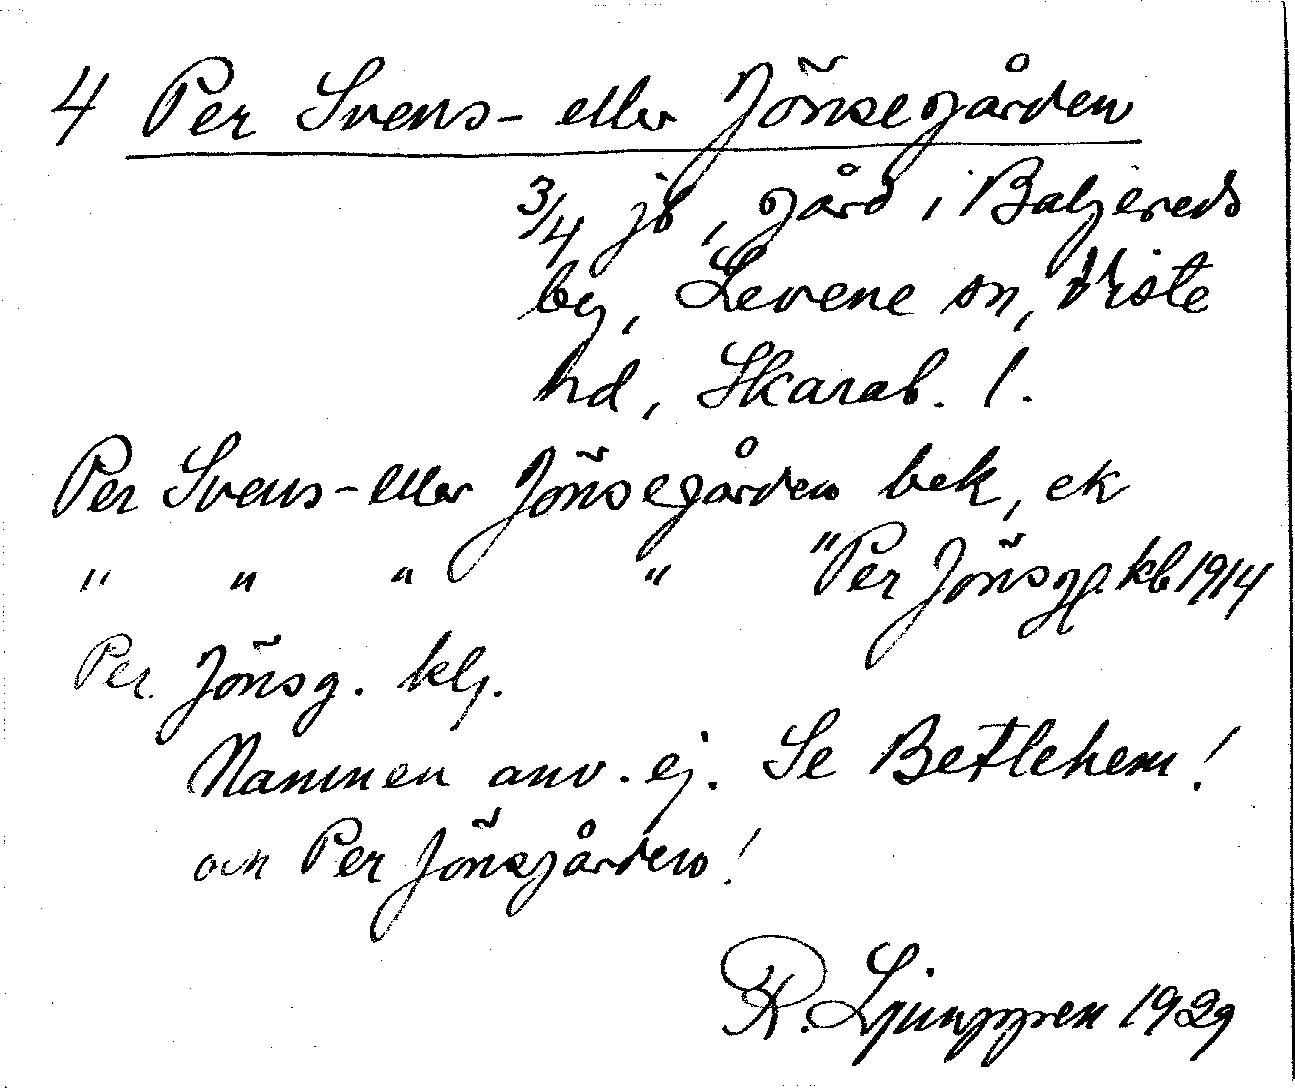 4 Per Svens- eller Jönsegården
3/4 jb, gård i Baljereds
by, Levene sn, Viste
hd, Skarab. l.
Per Svens- eller Jönsegården bek, ek
" " " " "Per Jönsg. kb 1914
Per Jönsg. klj.
Namnen anv. ej. Se Betlehem!
och Per Jönsgården!
R. Ljunggren 1929